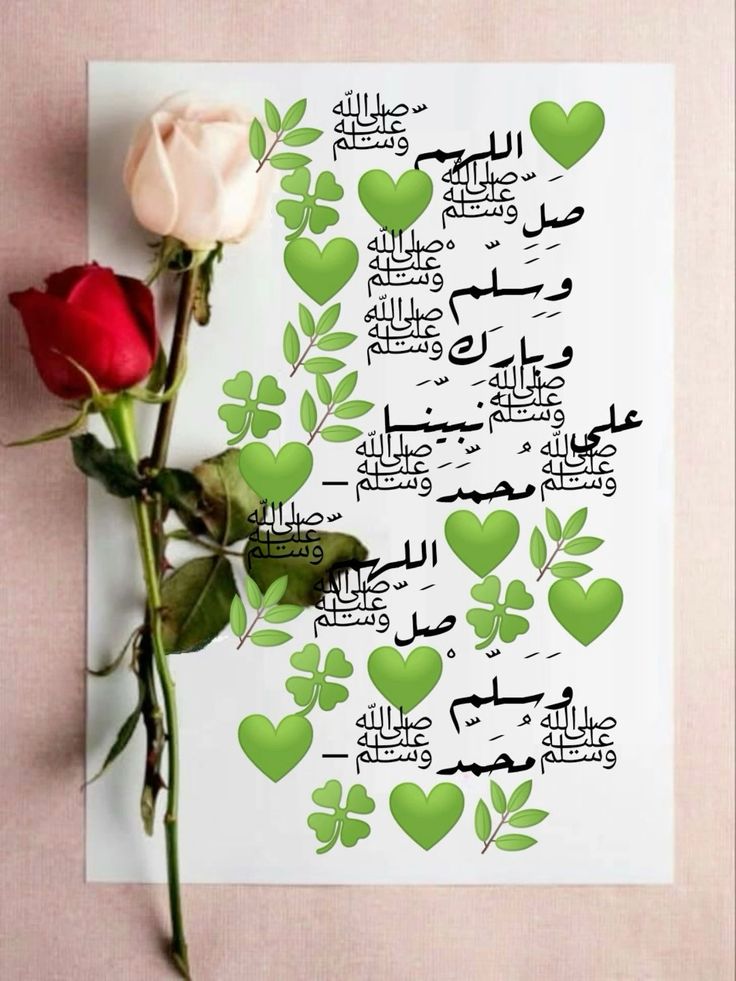 اللهمّ ﷺ
صَلِّ ﷺ
وَسَلِّمْ ﷺ
وَبَارِكْ ﷺ
على ﷺ نَبِيِّنَا
ﷺ مُحَمَّدَ ﷺ –
اللهمّ ﷺ
صَلِّ ﷺ
وَسَلِّمْ
ﷺ مُحَمَّد ﷺ –